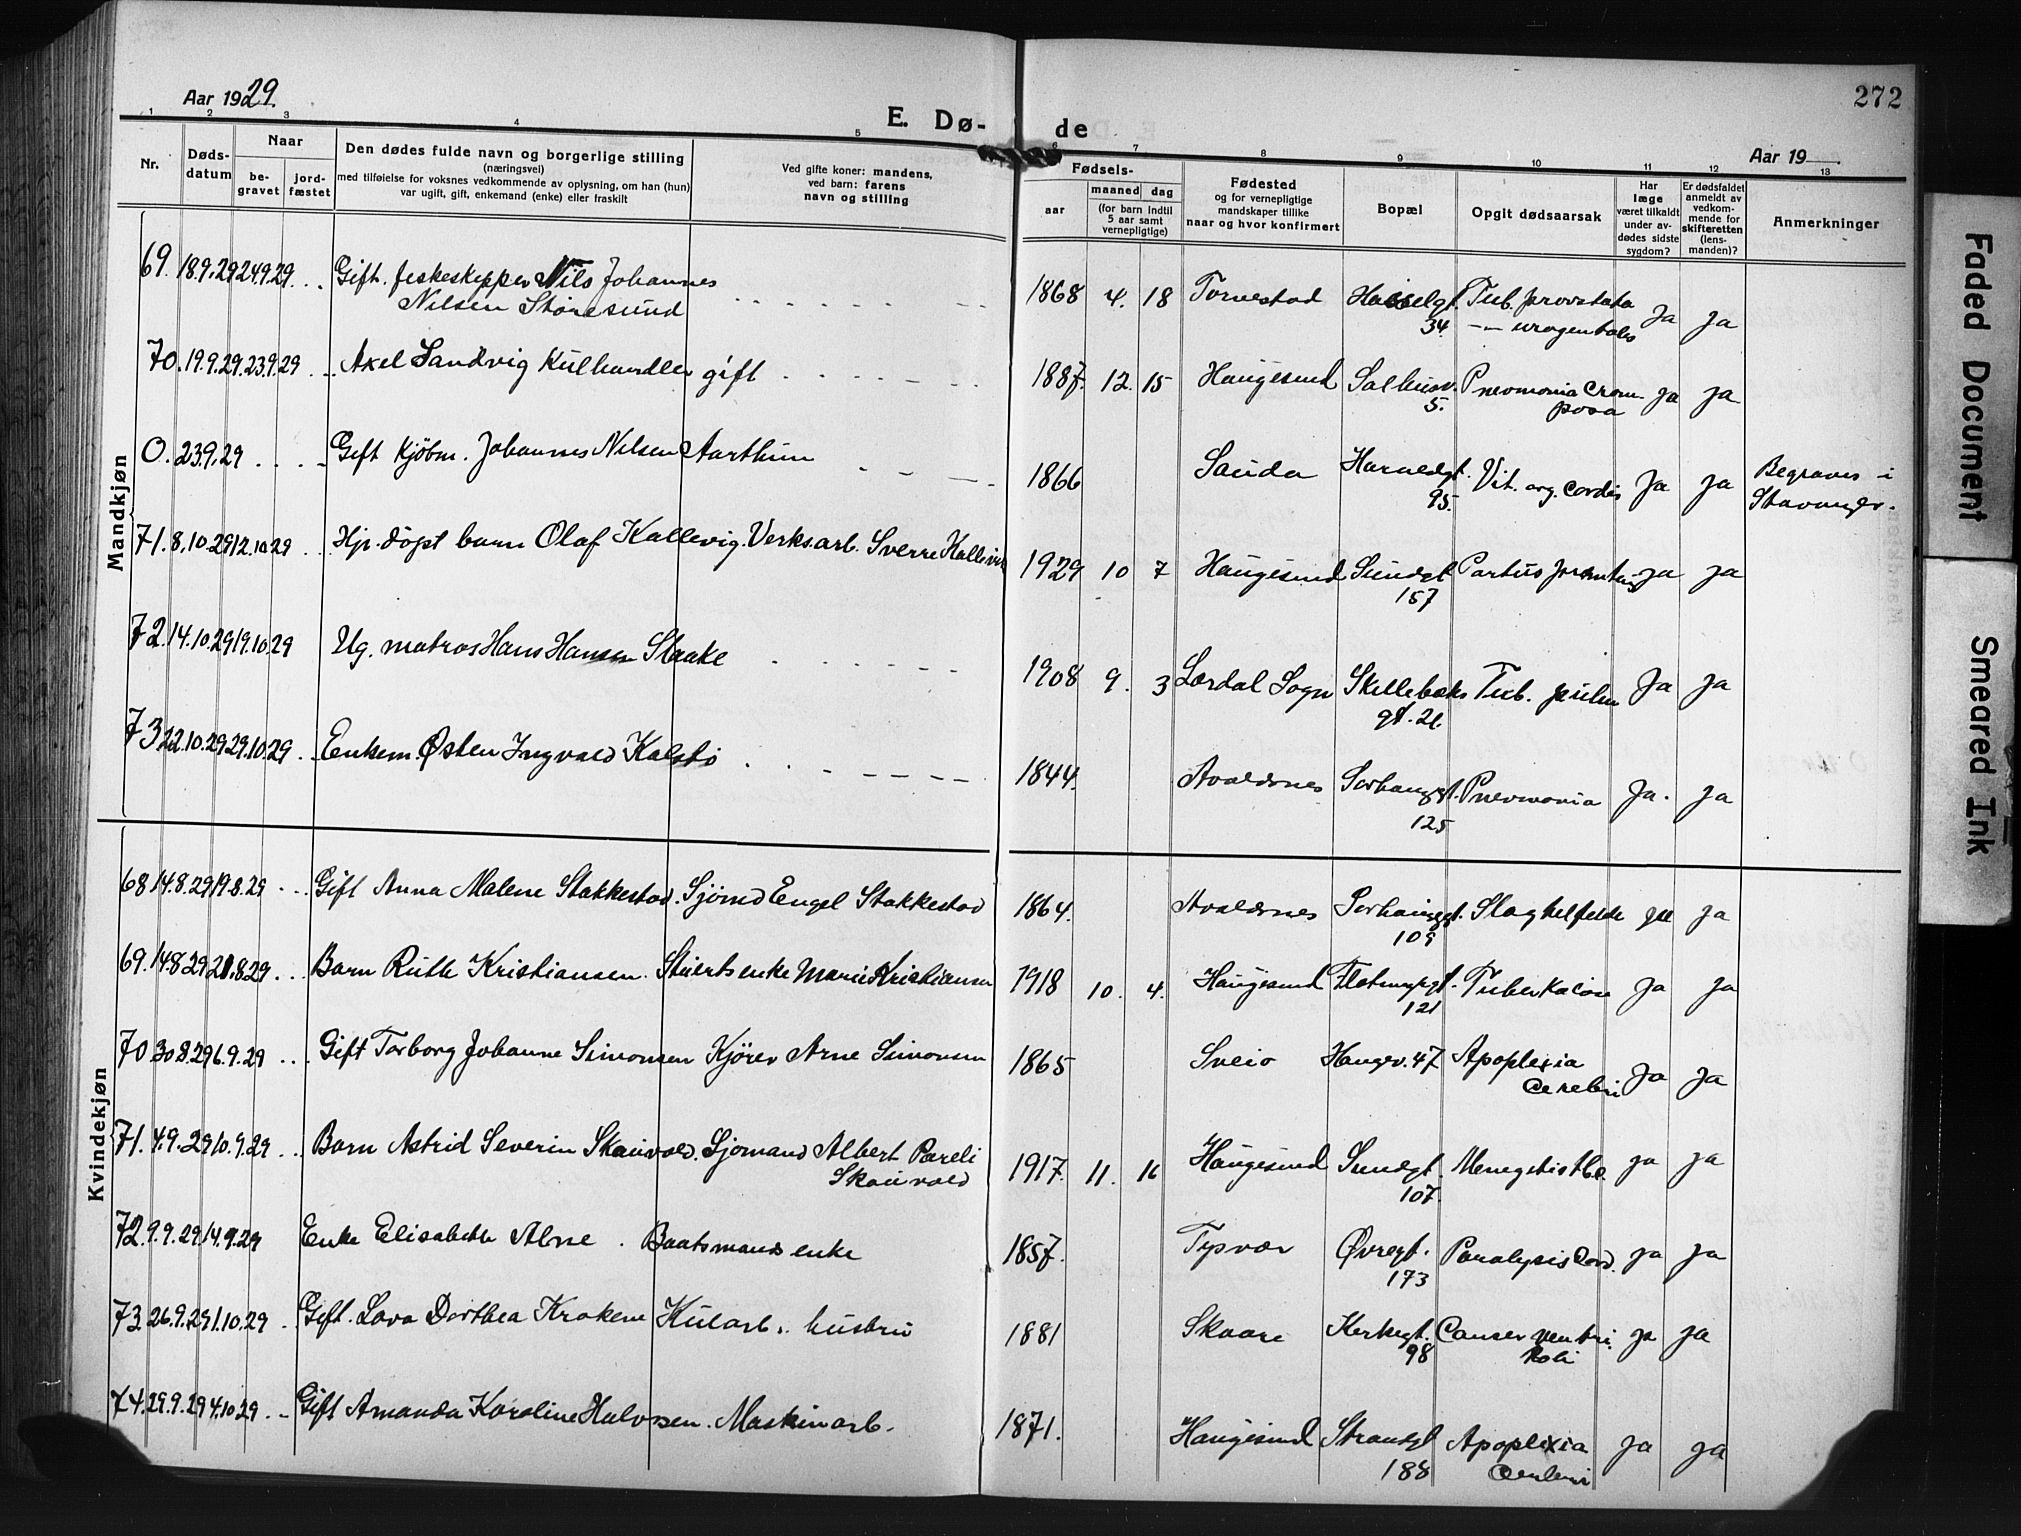 Aar 1929.
E. Dø-
de
Aar 19
272
1 2 3 4 5 6 7 8 9 10 11 12 13
Nr.
Døds-
datum
Naar
be-
gravet
jord-
fæstet
Den dødes fulde navn og borgerlige stilling
(næringsvei)
med tilføielse for voksnes vedkommende av oplysning, om han (hun)
var ugift, gift, enkemand (enke) eller fraskilt
Ved gifte koner: mandens,
ved barn: farens
navn og stilling
Fødsels-
aar
maaned
dag
(for barn indtil
5 aar samt
vernepligtige)
Fødested
og for vernepligtige
mandskaper tillike
naar og hvor konfirmert
Bopæl
Opgit dødsaarsak
Har
læge
været tilkaldt
under av-
dødes sidste
sygdom?
Er dødsfaldet
anmeldt av
vedkom-
mende for
skifteretten
(lens-
manden)?
Anmerkninger
Mandkjøn
69. 18.9.29 24.9.29 Gift. fiskeskipper Nils Johannes
Nilsen Storesund
1868 4. 18 Torvestad Hasselgt. Tub. prostata Ja Ja
34. -"- urogentales
70. 19.9.29. 23.9.29 Axel Sandvig Kulhandler gift
1887. 12. 15 Haugesund Salhusv. Pneomonia Crou- Ja Ja
5. posa
0. 23.9.29 Gift Kjöbm. Johannes Nilsen Aarthun
1866 Sauda Haraldgt. Vit. org. Cordis Ja Ja Begraves i
95. Stavanger.
71. 8.10.29 12.10.29 Hjr. døpt barn Olaf Kallevig. Verksarb. Sverre Kallevig
1929 10 7 Haugesund Sundgt Partus Ja Ja
157
72. 14.10.29 19.10.29 Ug. matros Hans Hansen Slaake
1908 9. 3 Lærdal Sogn Skillebæks Tub. pulm Ja Ja
gt. 21.
73 22.10.29 29.10.29 Enkem. Østen Ingvald Kalstø
1844. Avaldsnes Sørhauggt. Pneomonia Ja. Ja
125
Kvindekjøn
68 14.8.29 19.8.29 Gift Anna Malene Stakkestad. Sjømd Engel Stakkestad
1864. Avaldsnes Sørhauggt. Slagtilfelde Ja Ja
109
69. 14.8.29 21.8.29 Barn Ruth Kristiansen. Stuerts enke Marie Kristiansen
1918 10. 4. Haugesund Flotmyrgt. Tuberkulose Ja Ja
121
70 30.8.29 6.9.29 Gift Torborg Johanne Simonsen Kjører Arne Simonsen
1865 Sveio Haugev. 47 Apoplexia Ja Ja
Cerebri
71. 4.9.29 10.9.29 Barn Astrid Severin Skauvold. Sjömand Albert Pareli
Skauvold
1917. 11. 16 Haugesund Sundgt. Ja Ja
107.
72. 9.9.29 14.9.29 Enke Elisabeth Alne. Baatsmands enke
1857. Tysvær Øvregt. Paralysis Cord. Ja Ja
173
73. 26.9.29 1.10.29 Gift. Lava Dorthea Krakene Kularb. hustru
1881 Skaare Kirkegt. Canser ventri- Ja Ja
98 koli
74. 29.9.29 4.10.29 Gift Amanda Karoline Halvorsen. Maskinarb.
1871. Haugesund Strandgt Apoplexia Ja Ja
188 Cerebri
Faded Document
Smeared Ink